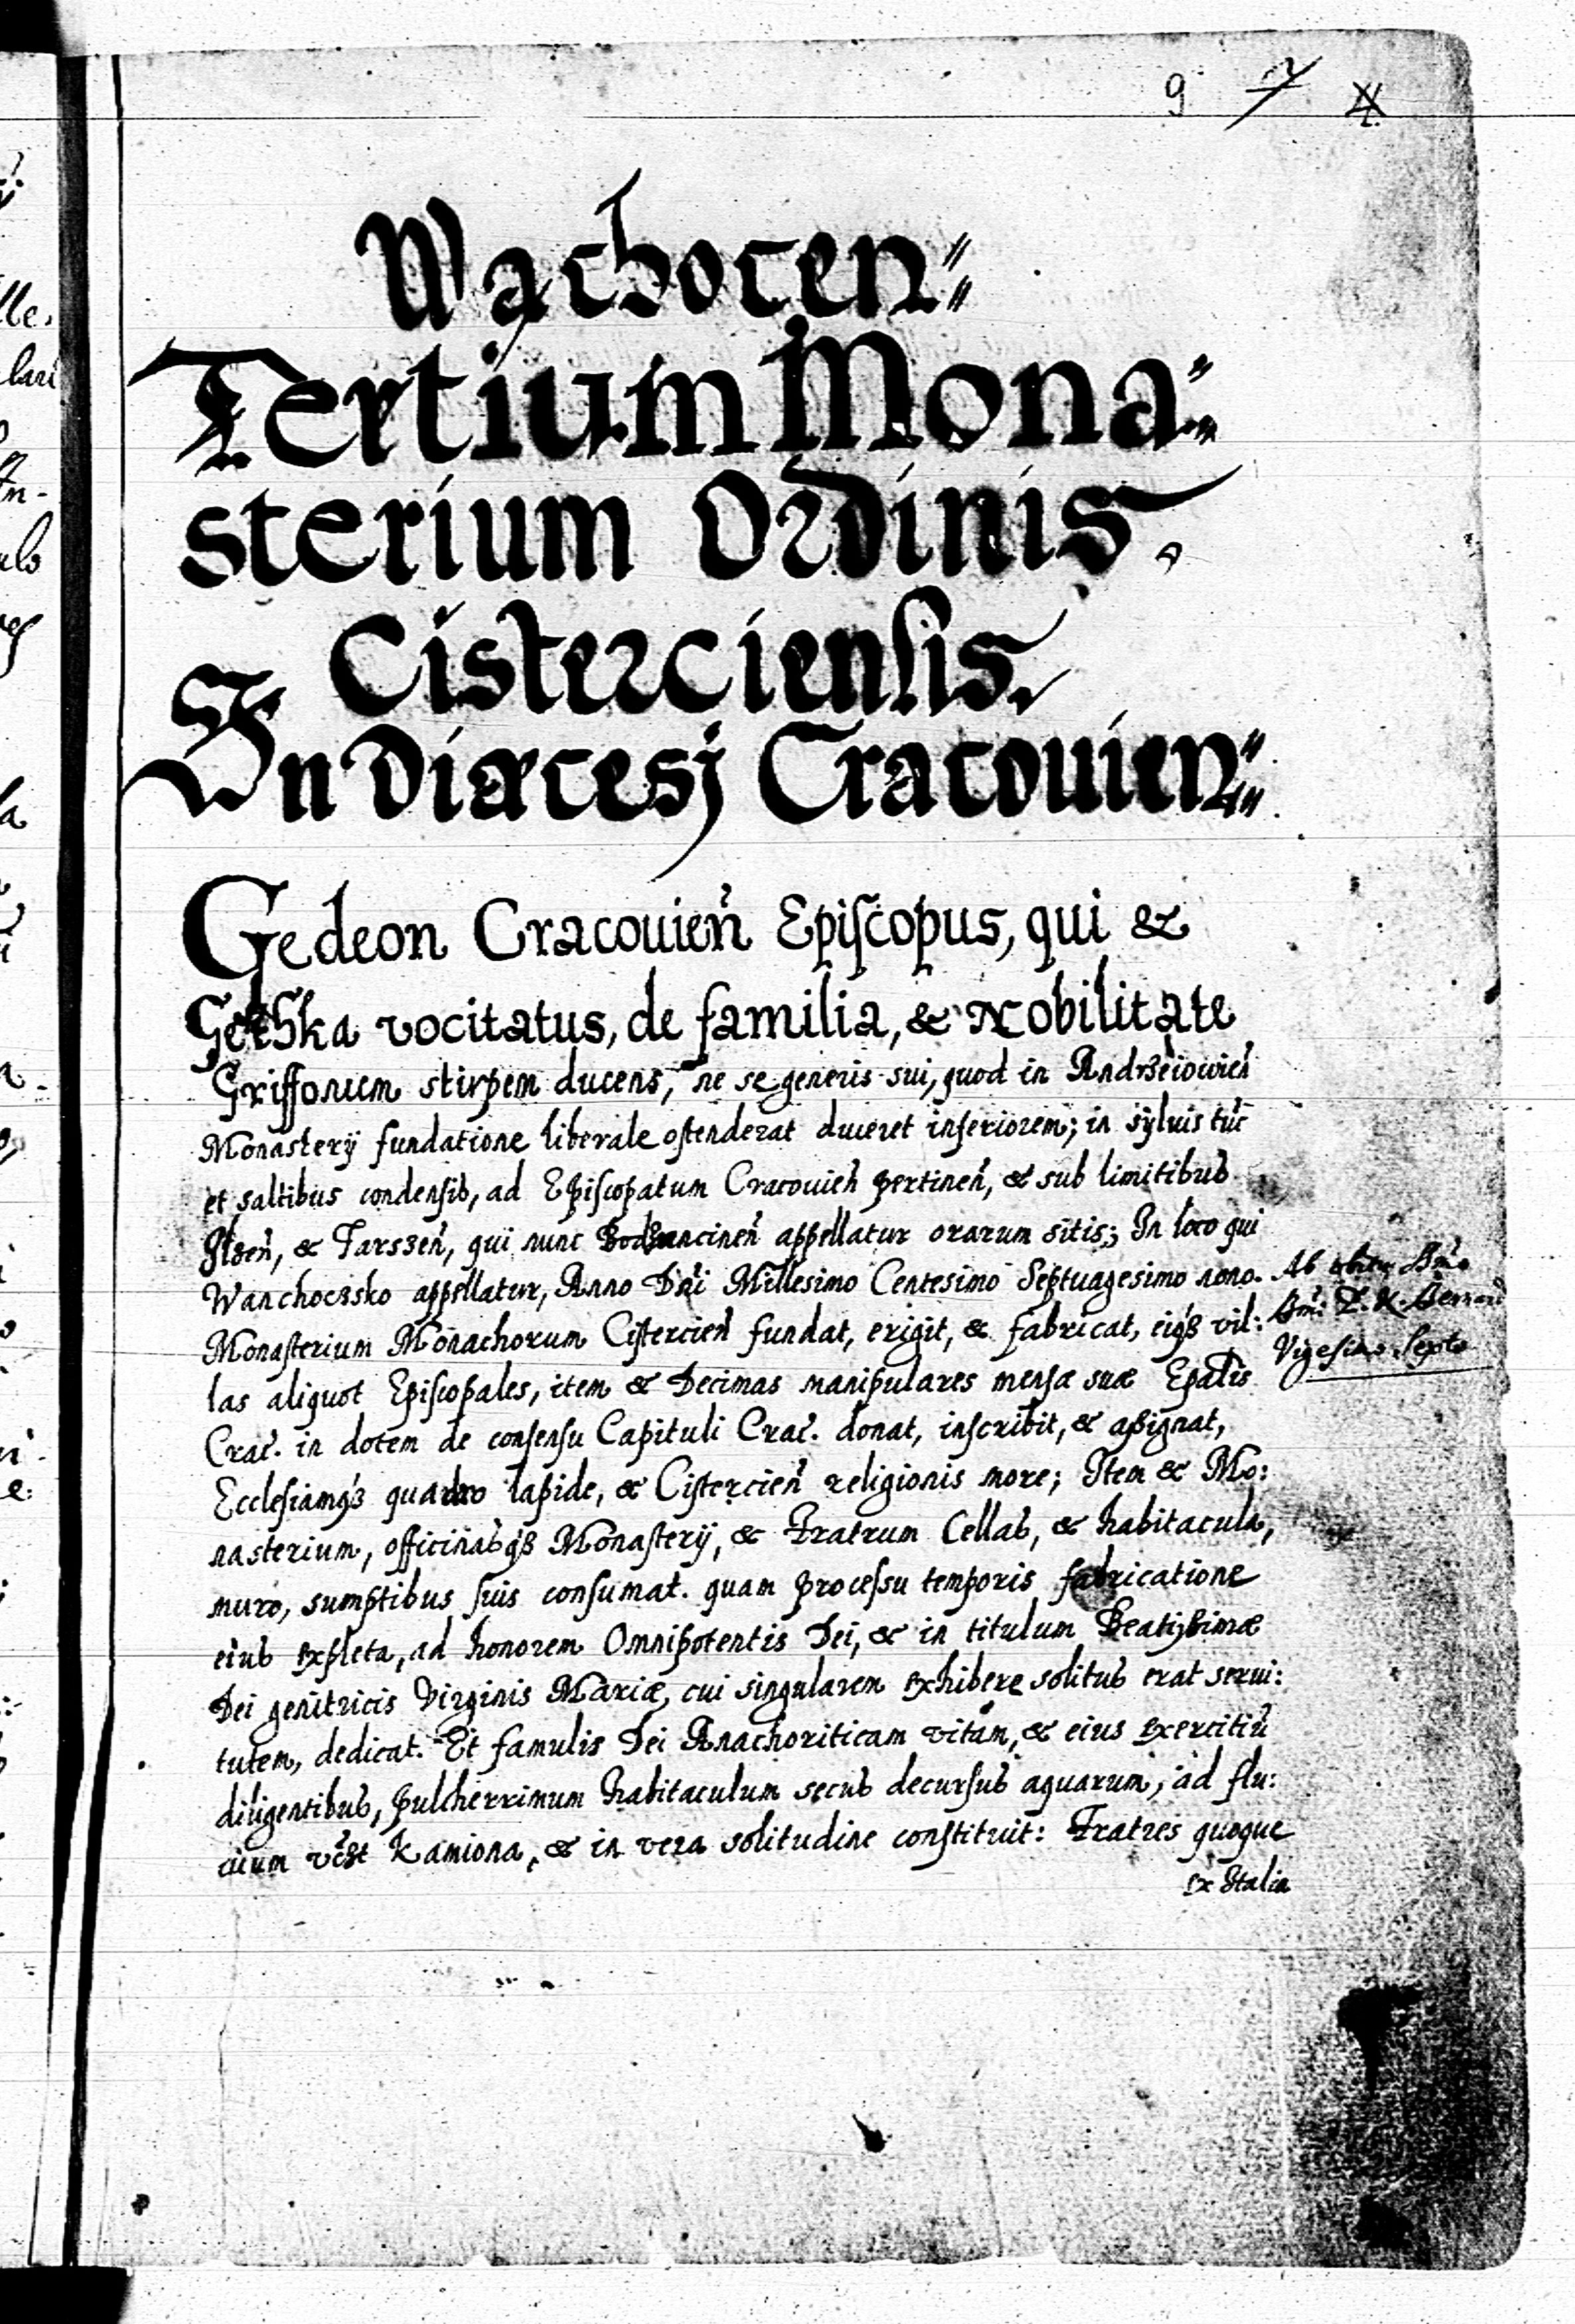 9 7
Wąchocen:
Tertium Mona:
sterium Ordinis
Cisterciensis.
In Diæcesj Cracouien:
Gedeon Cracouień Episcopus, qui &
Gethka vocitatus, de familia, & Nobilitate
Griffonum stirpem ducens, ne se generis sui, quod in Andrzeiowień
Monasterÿ fundatione liberale ostenderat duceret inferiorem; in sÿluis tuč
et saltibus condensis, ad Episcopatum Cracouień pertineń, & sub limitibus
Ilzeń, & Tarszeń, qui nunc Bodzancineń appellatur orarum sitis; In loco qui
Wanchoczsko appellatur, Anno Dñi Millesimo Centesimo Septuagesimo nono.
Monasterium Monachorum Cistercień fundat, erigit, & fabricat, eiqȝ vil:
las aliquot Episcopales, item & Decimas manipulares mensæ suæ Epalis
Crac̃. in dotem de consensu Capituli Crac̃. donat, inscribit, & aßignat,
Ecclesiamqȝ quadro lapide, & Cistercień religionis more; Item & Mo:
nasterium, officinasqȝ Monasterÿ, & Fratrum Cellas, & habitacula,
muro, sumptibus suis consumat. quam processu temporis fabricatione
eius expleta, ad honorem Omnipotentis Dei, & in titulum Beatißimæ
Dei genitricis Virginis Mariæ, cui singularem exhibere solitus erat serui:
tutem, dedicat. Et famulis Dei Anachoriticam vitam, & eius exercitiũ
diligentibus, pulcherrimum habitaculum secus decursus aquarum, ad flu:
uium vc̃zt Kamiona, & in vera solitudine constituit: Fratres quoque
ex Italia
Ab obitu
Bernard
Vigesimo Sexto